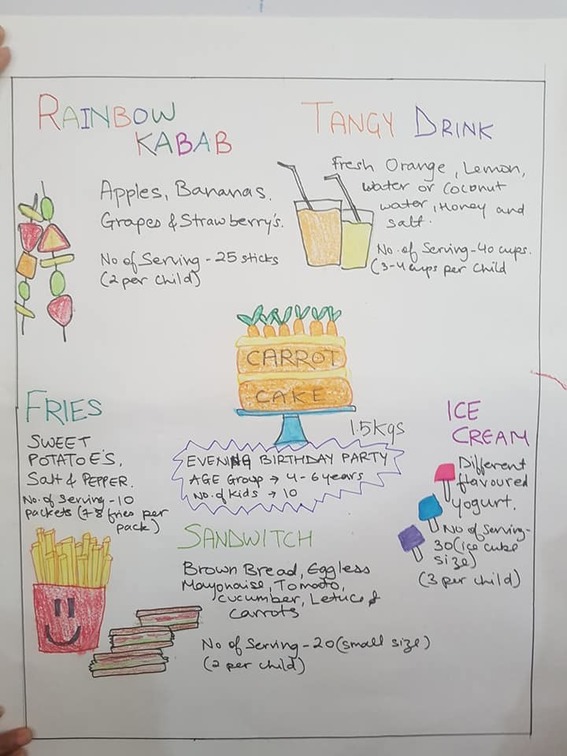 RAINBOW
KABAB
Apples, Bananas,
Grapes & Strawberry's.
No of Serving - 25 sticks
(2 per child)
TANGY DRINK
Fresh Orange, Lemon,
water or Coconut
water, Honey and
salt.
No. of Serving - 40 cups.
(3-4 cups per child
CARROT
CAKE
1.5kgs
EVENING BIRTHDAY PARTY
AGE Group → 4-6 years
No. of kids → 10
FRIES
SWEET
POTATOE'S,
Salt & PEPPER.
No. of Serving - 10
packets (7-8 fries per
pack)
ICE
CREAM
Different
flavoured
yogurt.
No of Serving -
30 (ice cube
size)
(3 per child)
SANDWITCH
Brown Bread, Eggless
Mayonaise, Tomato,
cucumber, Letuce &
carrots
No of Serving - 20 (small size)
(2 per child)